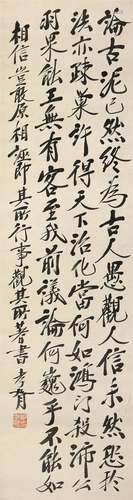 論古泥已然終為古人愚觀人信未然恐於
法亦疎巢許得天下治化當何如鴻門殺沛公
羽果能王無有客至我前議論何巍乎不能如
相信豈敢厚相誣即其所行事觀其所著書 孝胥